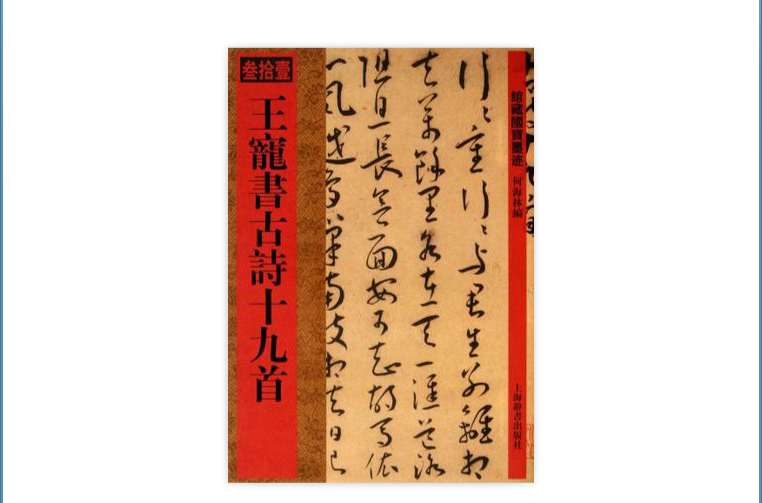 叁拾壹
王寵書古詩十九首
行〻重行〻与君生別離相
去萬餘里各在天一涯道路
阻且長會面安可知胡馬依
風越鳥巢南枝相去日已
館藏國寶墨迹
何海林編
上海辭書出版社